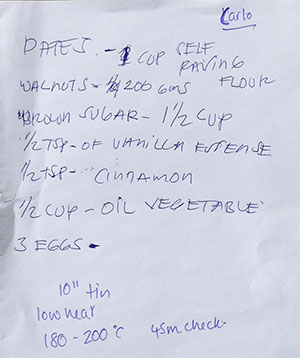 Carlo
DATES - 1 CUP SELF
RAVING
FLOUR
WALNUTS - 200 GMS
BROWN SUGAR - 1 1/2 CUP
1/2 TSP - OF VANILLA ESTENSE
1/2 TSP - CINNAMON
1/2 CUP - OIL VEGETABLE
3 EGGS -
10" tin
low heat
180 - 200°C 45m check.